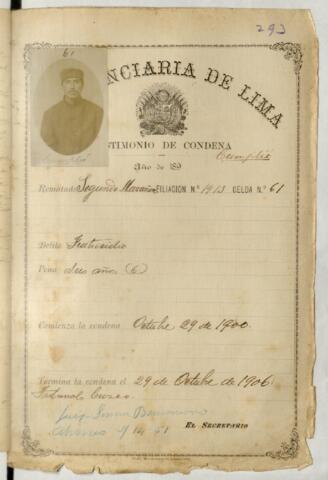 293
61
NCIARIA DE LIMA
STIMONIO DE CONDENA
Cumplió
Cumplió
Año de 189
Rematado Segundo FILIACION N.° 1913 CELDA N.° 61
Delito Fratricidio
Pena seis años (6)
Comienza la condena Octubre 29 de 1900.
Termina la condena el 29 de Octubre de 1906.
Tribunal Cuzco
Juez
EL SECRETARIO